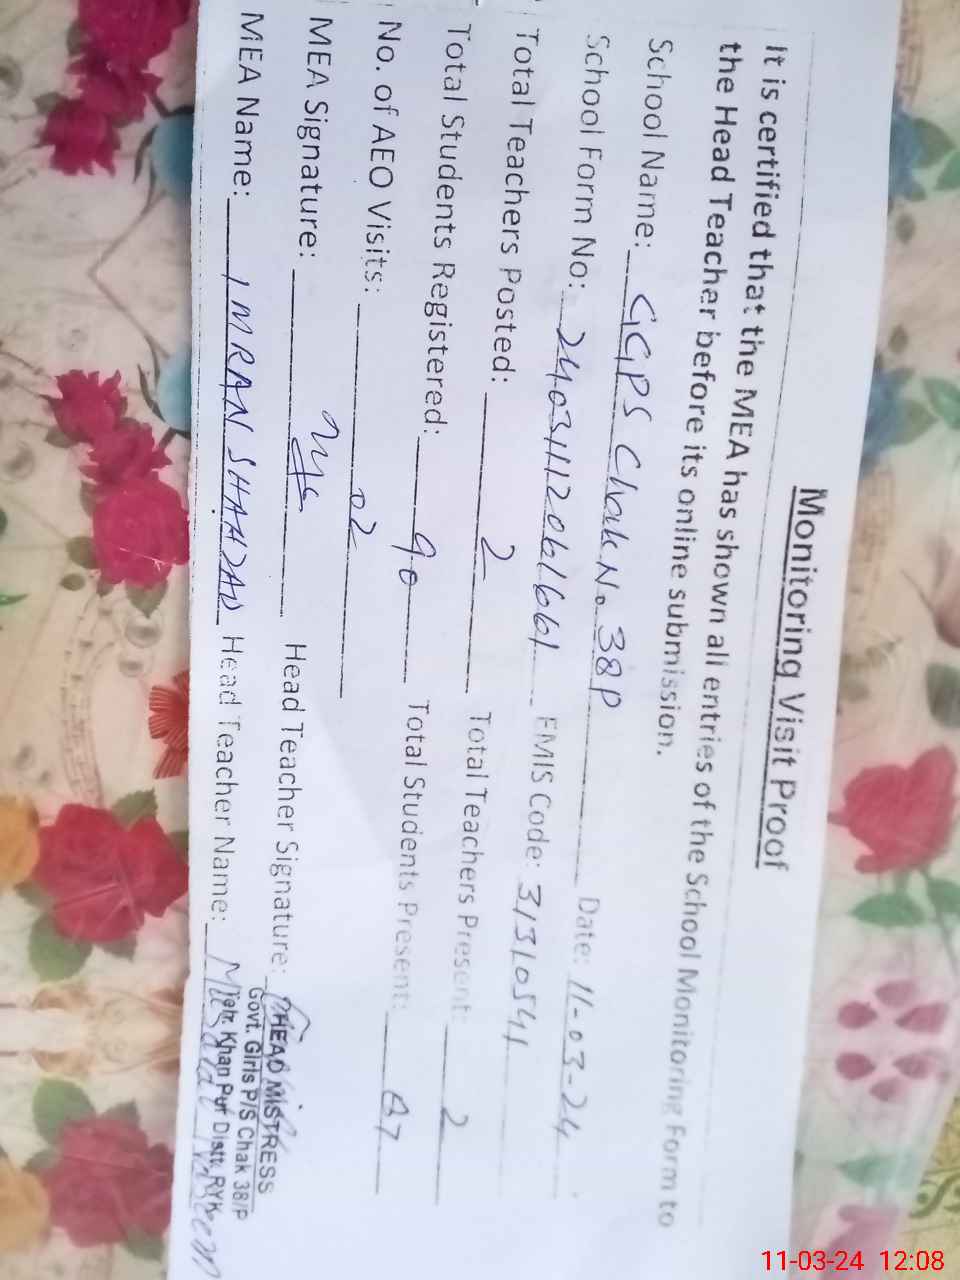 Monitoring Visit Proof
It is certified that the MEA has shown all entries of the School Monitoring Form to
the Head Teacher before its online submission.
School Name: GGPS Chak No. 38P Date: 11-03-24
School Form No: 24031112061661 EMIS Code: 31310541
Total Teachers Posted: 2 Total Teachers Present: 2
Total Students Registered: 90 Total Students Present: 87
No. of AEO Visits: 02
MEA Signature: Head Teacher Signature:
HEAD MISTRESS
Govt. Girls P/S Chak 38/P
Teh. Khan Pur Distt. RYK
MEA Name: IMRAN SHAHZAD Head Teacher Name:
11-03-24 12:08